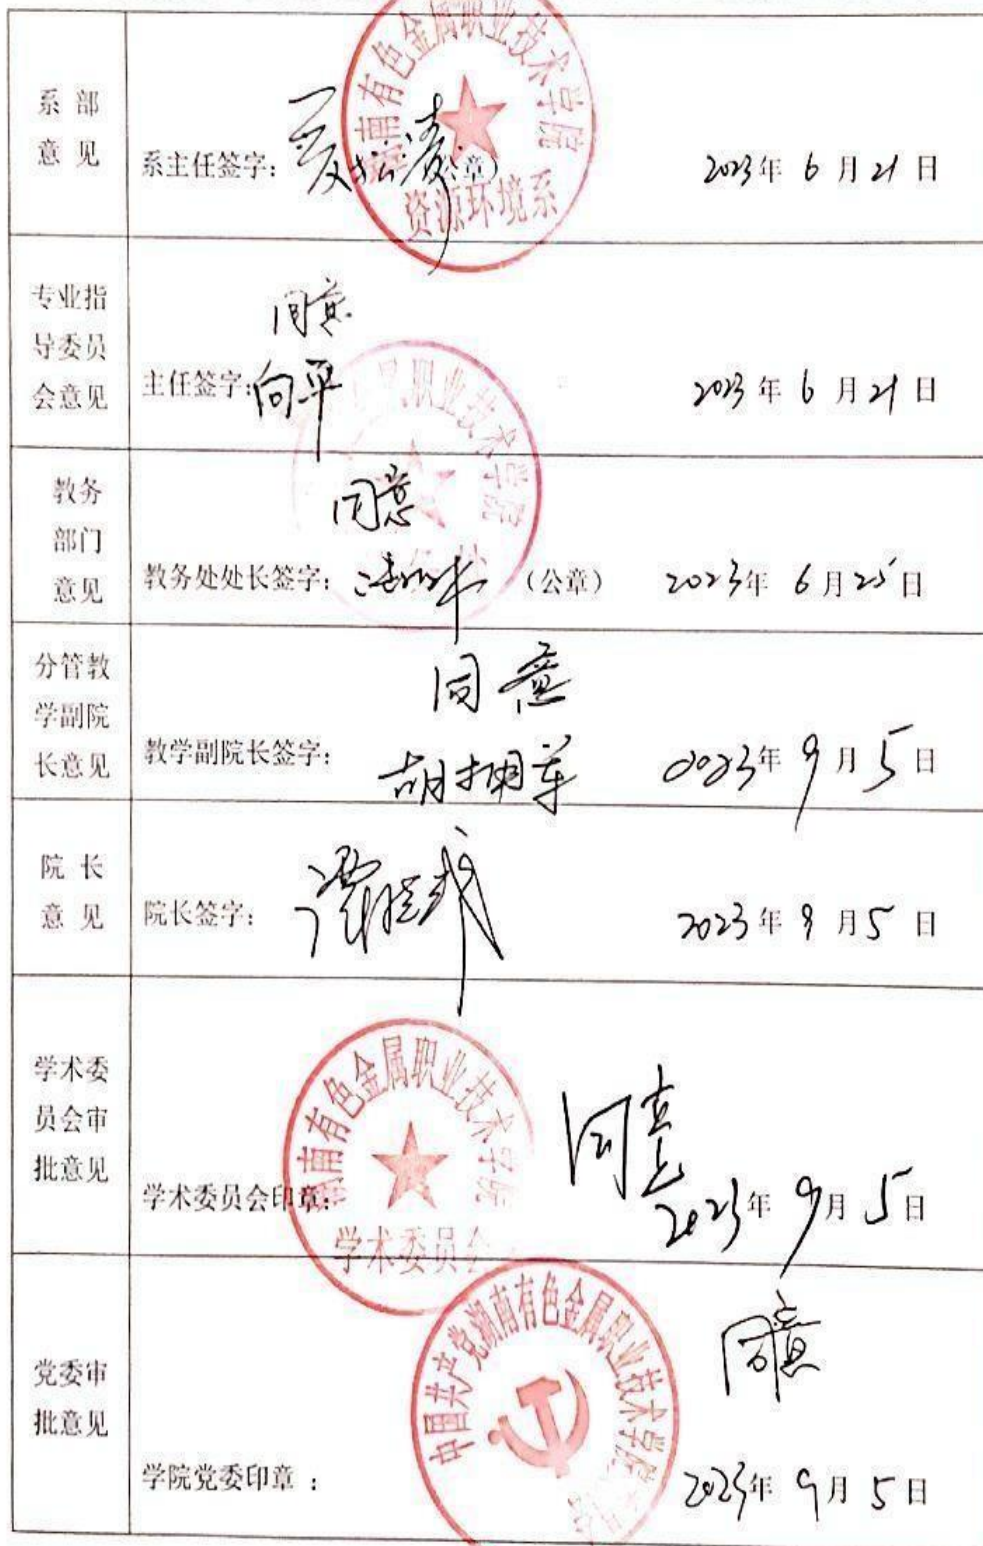 系 部
意 见
湖南有色金属职业技术学院
资源环境系
系主任签字：
公章）
2023年 6 月 21 日
专业指
导委员
会意见
同意
主任签字：向平
2023 年 6 月 21 日
教务
部门
意见
职业技术学院
同意
教务处处长签字：
（公章）
2023年 6 月25日
分管教
学副院
长意见
同意
教学副院长签字：
胡拥军
2023年 9 月 5 日
院 长
意 见
院长签字：
2023 年 9 月 5 日
学术委
员会审
批意见
湖南有色金属职业技术学院
学术委员会
同意
学术委员会印章：
2023年 9月 5日
党委审
批意见
中国共产党湖南有色金属职业技术学院
同意
学院党委印章 ：
2023年 9月 5日